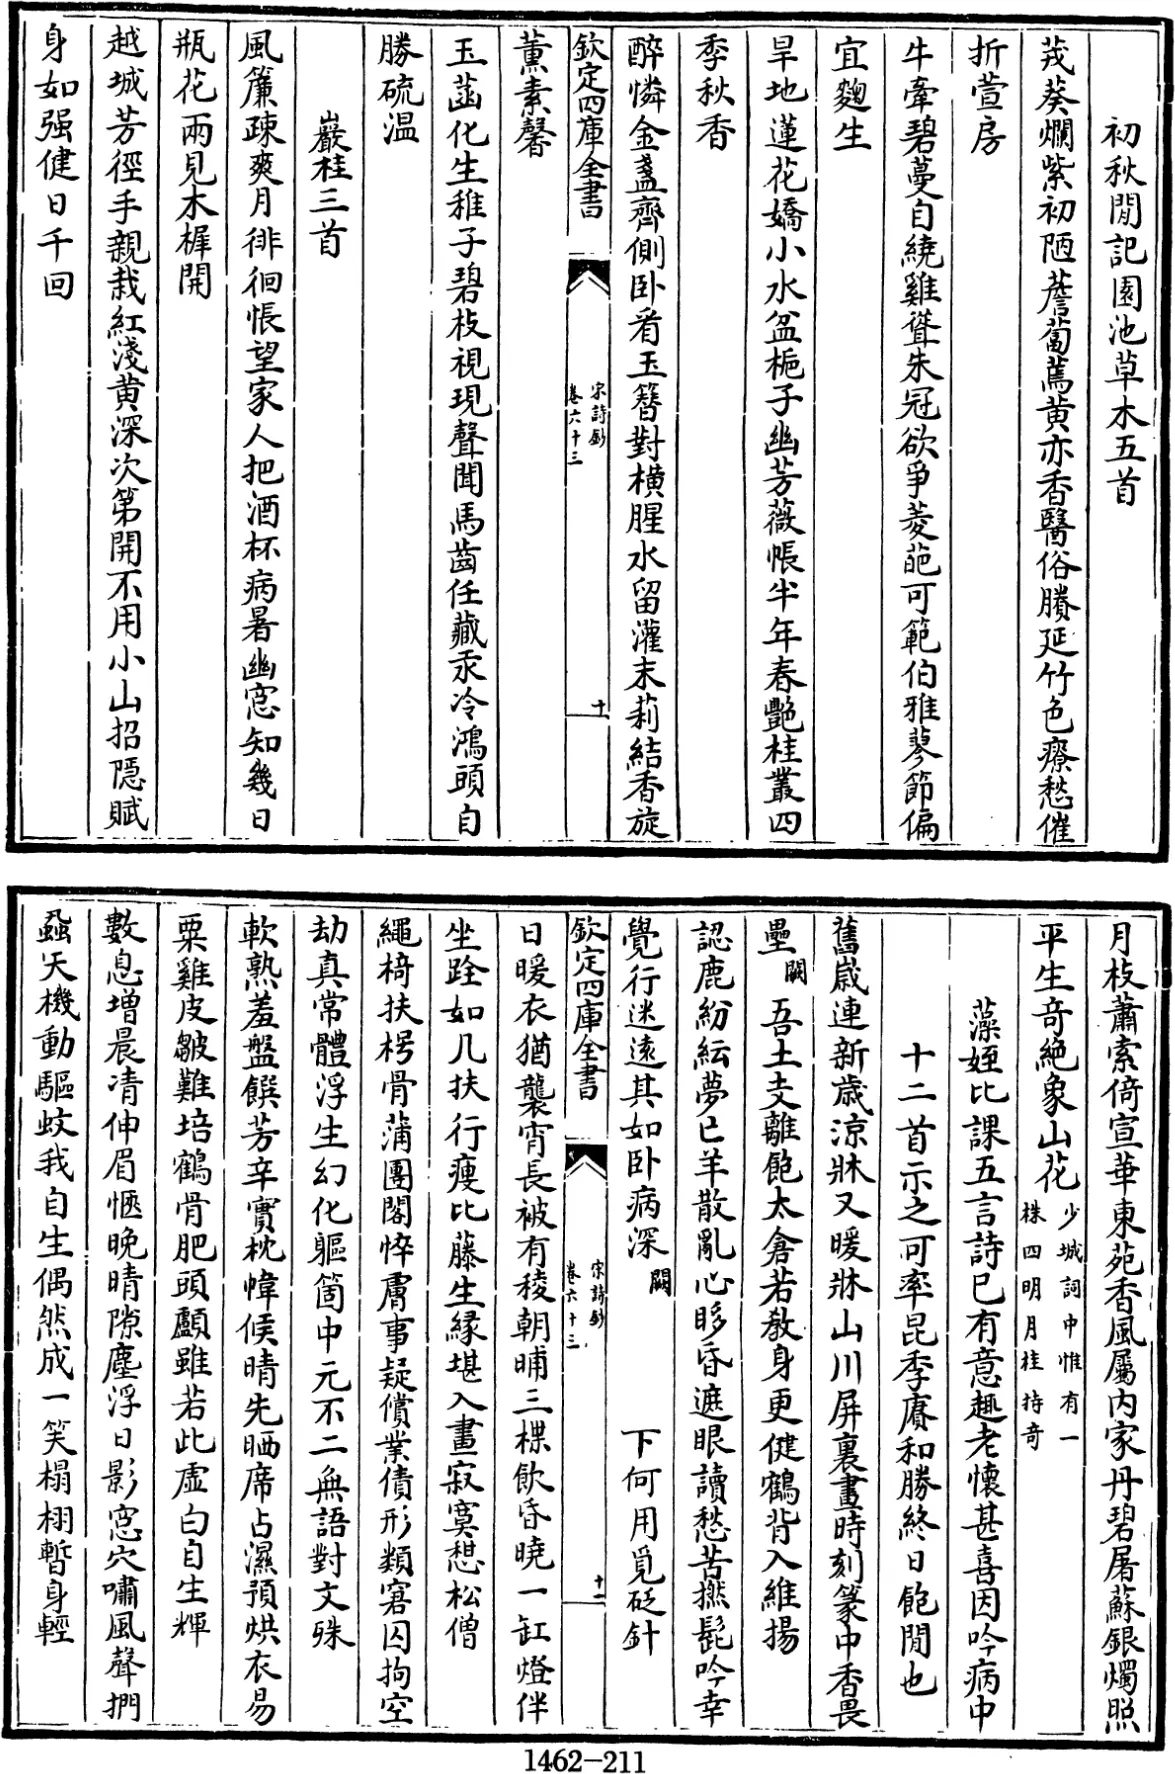 初秋閒記園池草木五首
茂葵爛紫初陋薝蔔薦黃亦香醫俗賸延竹色療愁催
折萱房
牛牽碧蔓自繞雞聳朱冠欲爭菱葩可範伯雅蓼節偏
宜麴生
旱地蓮花嬌小水盆梔子幽芳薇帳半年春艷桂叢四
季秋香
醉憐金盞齊側卧看玉簪對橫腥水留灌末莉結香旋
欽定四庫全書
宋詩鈔
卷六十三
十
薰素馨
玉菡化生稚子碧枝視現聲聞馬齒任藏汞冷鴻頭自
勝硫温
巖桂三首
風簾疎爽月徘徊悵望家人把酒杯病暑幽窓知幾日
瓶花兩見木樨開
越城芳徑手親栽紅淺黃深次第開不用小山招隱賦
身如强健日千回
月枝蕭索倚宣華東苑香風屬内家丹碧屠蘇銀燭照
平生奇絶象山花
少城詞中惟有一
株四明月桂持奇
藻姪比課五言詩已有意趣老懷甚喜因吟病中
十二首示之可率昆季賡和勝終日飽閒也
舊歲連新歲涼牀又暖牀山川屏裏畫時刻篆中香畏
壘闕吾土支離飽太倉若教身更健鶴背入維揚
認鹿紛紜夢亡羊散亂心眵昏遮眼讀愁苦撚髭吟幸
覺行迷遠其如卧病深闕下何用覓砭針
欽定四庫全書
宋詩鈔
卷六十三
十一
日暖衣猶襲宵長被有稜朝晡三楪飲昏曉一缸燈伴
坐跧如几扶行瘦比藤生緣堪入畫寂寞憇松僧
繩椅扶枵骨蒲團閣悴膚事疑償業債形類窘囚拘空
劫真常體浮生幻化軀箇中元不二無語對文殊
軟熟羞盤饌芳辛實枕幃候晴先晒席占濕預烘衣易
粟雞皮皺難培鶴骨肥頭顱雖若此虛白自生輝
數息增晨凊伸眉愜晚晴隙塵浮日影窓穴嘯風聲捫
蝨天機動驅蚊我自生偶然成一笑榻栩暫身輕
1462-211